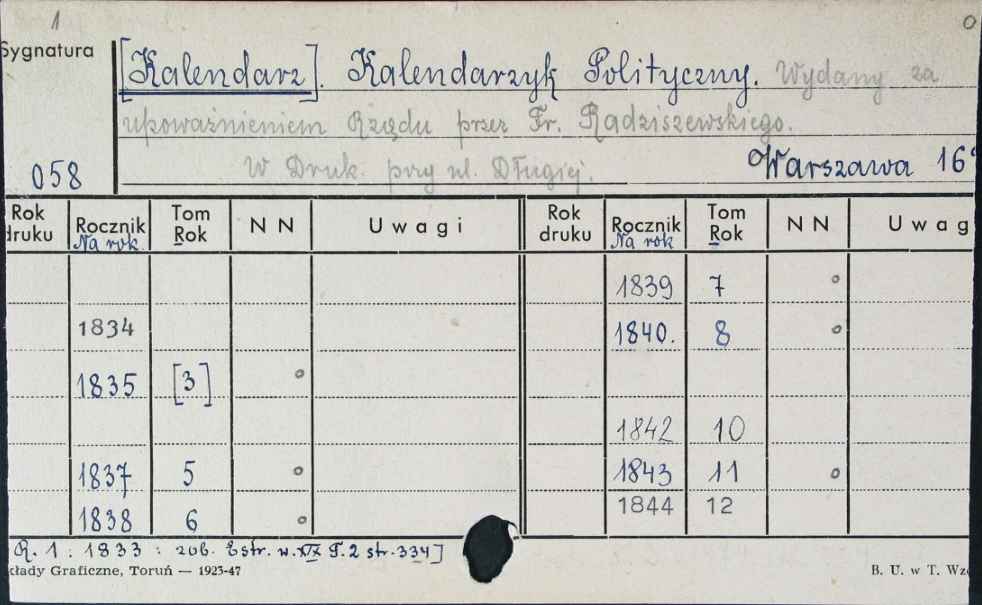 1 0
Sygnatura
[Kalendarz]. Kalendarzyk Polityczny. Wydany za
upoważnieniem Rządu przez Fr. Radziszewskiego.
W Druk. przy ul. Długiej.
058 Warszawa 16°
Rok druku Rocznik Na rok Tom Rok N N Uwagi Rok druku Rocznik Na rok Tom Rok N N Uwag
1839 7 o
1834 1840. 8 o
1835 [3] o
1842 10
1837 5 o 1843 11 o
1838 6 o 1844 12
R. 1 : 1833 : zob. Estr. w. XIX T. 2 str. 334]
kłady Graficzne, Toruń — 1923-47 B. U. w T. Wz